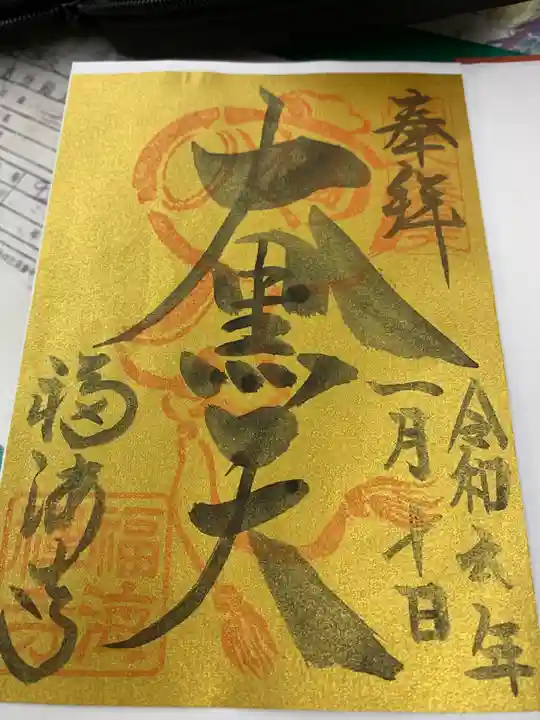 奉拝
大黒天
令和六年
一月十日
福海寺
福海